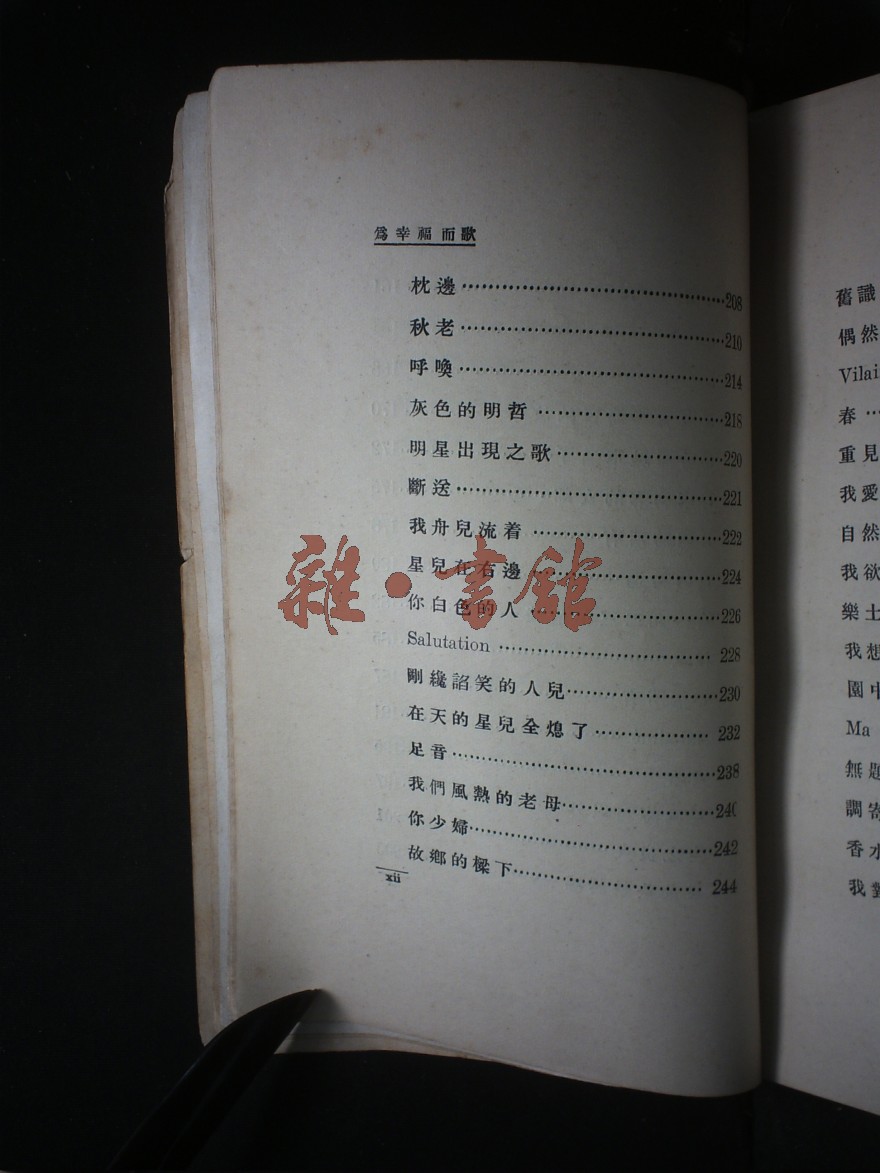 為幸福而歌
枕邊……208
秋老……210
呼喚……214
灰色的明哲……218
明星出現之歌……220
斷送……221
我舟兒流着……222
星兒在右邊……224
你白色的人……226
Salutation……228
剛纔諂笑的人兒……230
在天的星兒全熄了……232
足音……238
我們風熱的老母……240
你少婦……242
故鄉的樑下……244
xii
雜·書館
舊識
偶然
Vilai
春…
重見
我愛
自然
我欲
樂土
我想
園中
Ma
無題
調寄
香水
我對